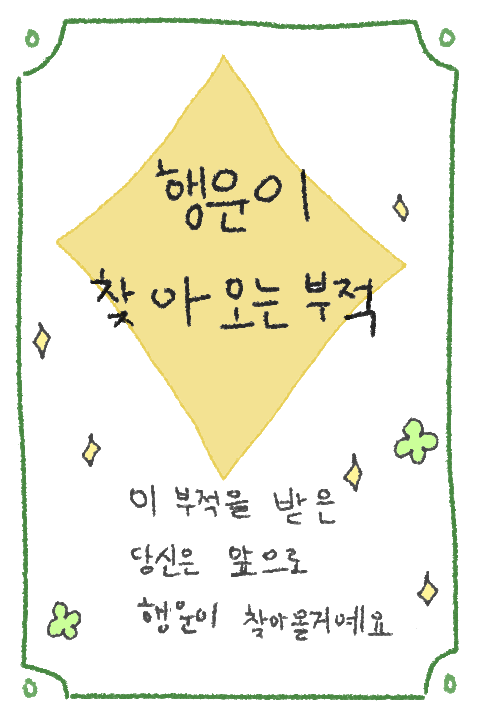 행운이
찾아오는 부적
이 부적을 받은
당신은 앞으로
행운이 찾아올거예요